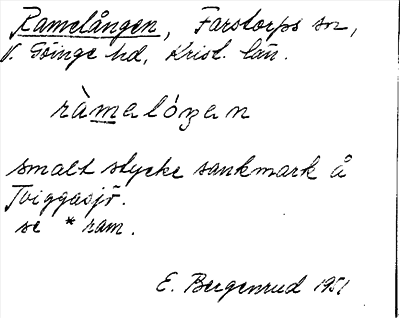 Ramelången, Farstorps sn,
V. Göinge hd, Krist. län.
ràmelóŋen
smalt stycke sankmark å
Tviggasjö.
se *ram.
E. Bergenrud 1951